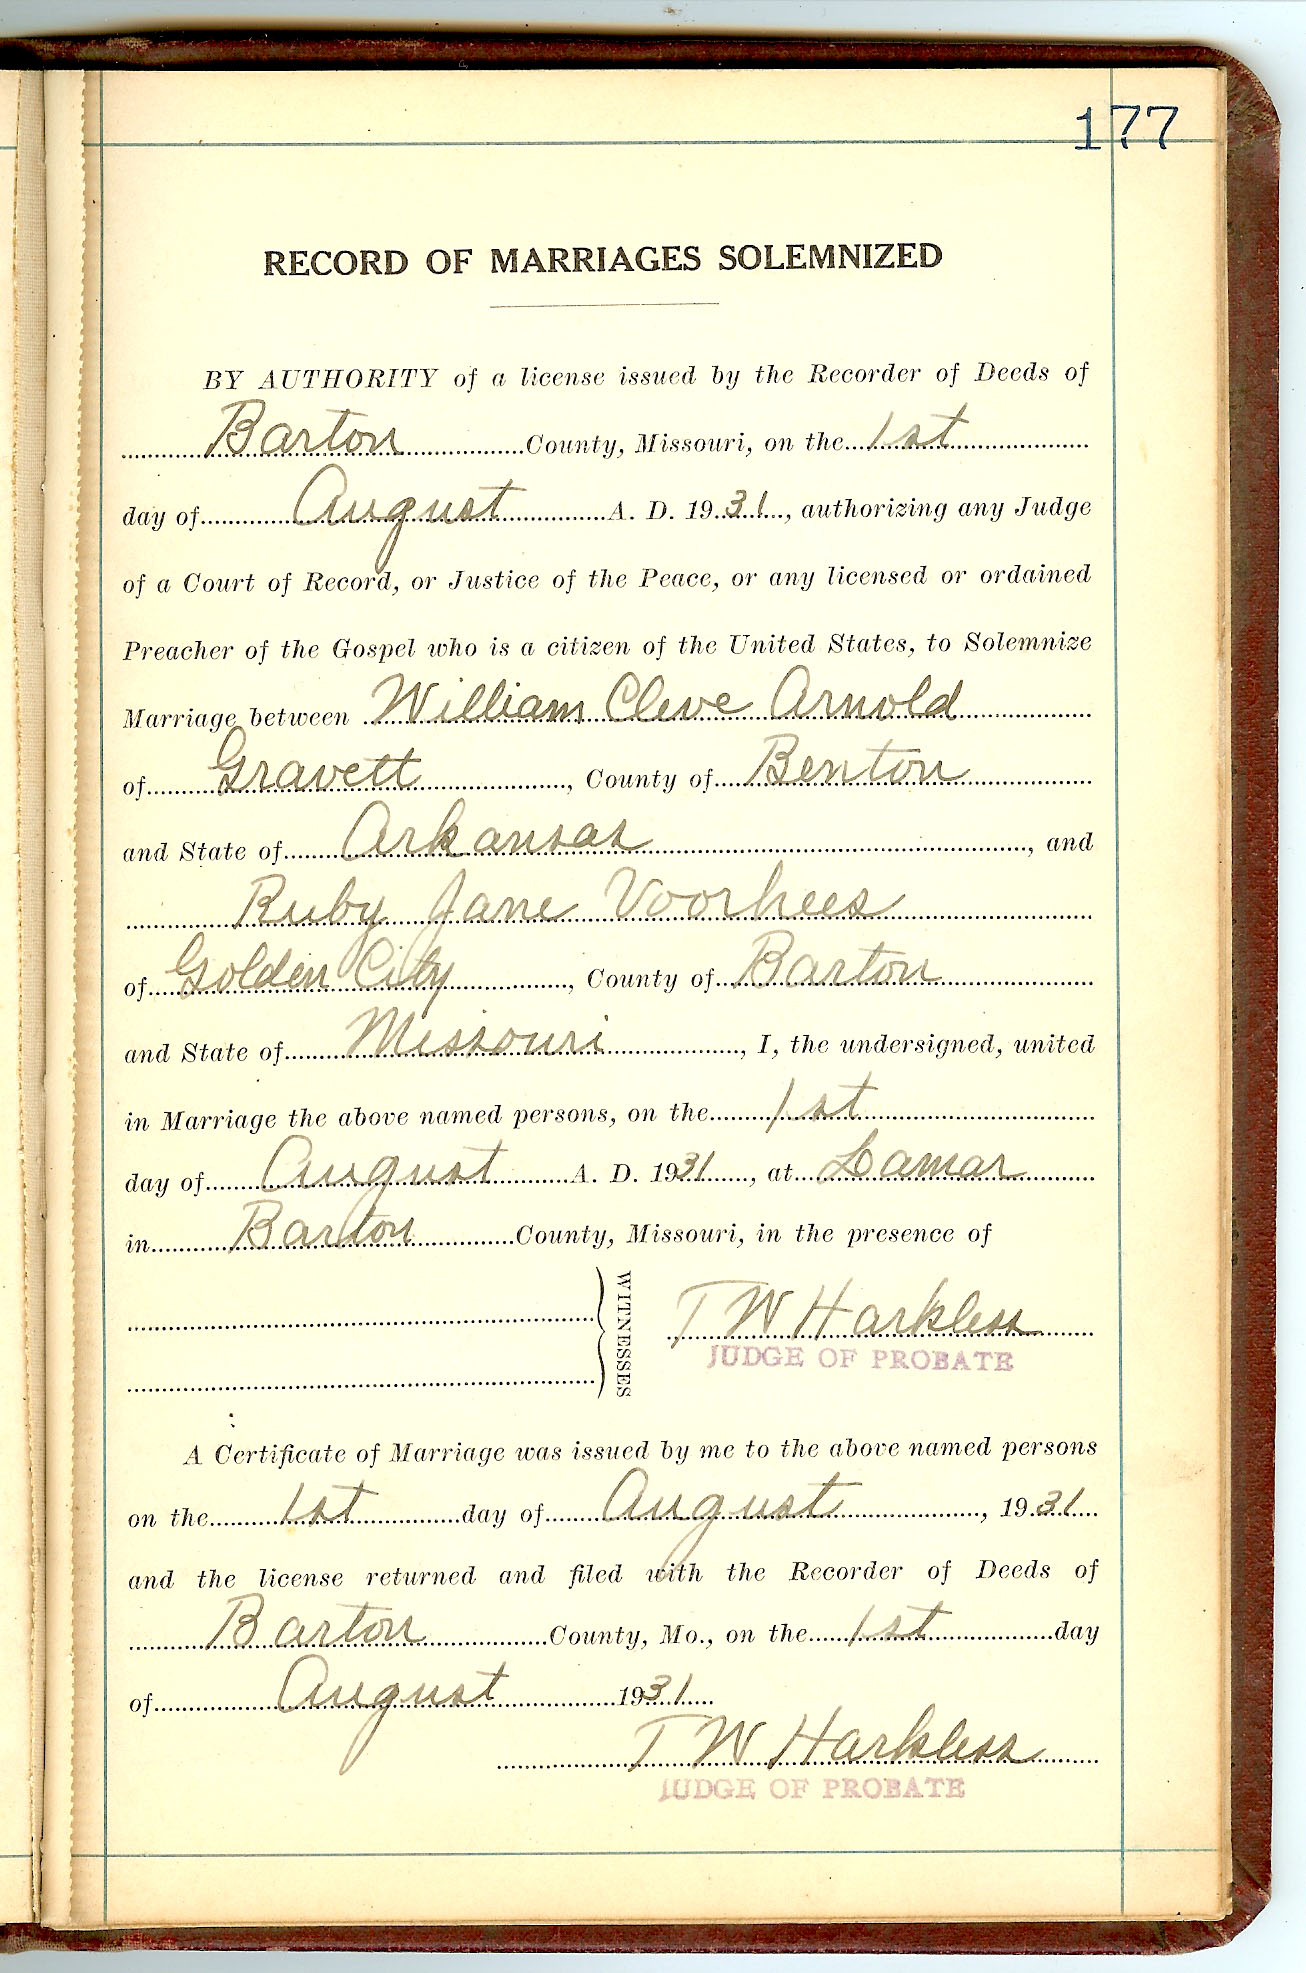 177
RECORD OF MARRIAGES SOLEMNIZED
BY AUTHORITY of a license issued by the Recorder of Deeds of
Barton County, Missouri, on the 1st
day of August A. D. 1931, authorizing any Judge
of a Court of Record, or Justice of the Peace, or any licensed or ordained
Preacher of the Gospel who is a citizen of the United States, to Solemnize
Marriage between William Cleve Arnold
of Gravett, County of Benton
and State of Arkansas, and
Ruby Jane Voorhees
of Golden City, County of Barton
and State of Missouri, I, the undersigned, united
in Marriage the above named persons, on the 1st
day of August A. D. 1931, at Lamar
in Barton County, Missouri, in the presence of
WITNESSES
T W Harkless
JUDGE OF PROBATE
A Certificate of Marriage was issued by me to the above named persons
on the 1st day of August, 1931
and the license returned and filed with the Recorder of Deeds of
Barton County, Mo., on the 1st day
of August 1931
T W Harkless
JUDGE OF PROBATE